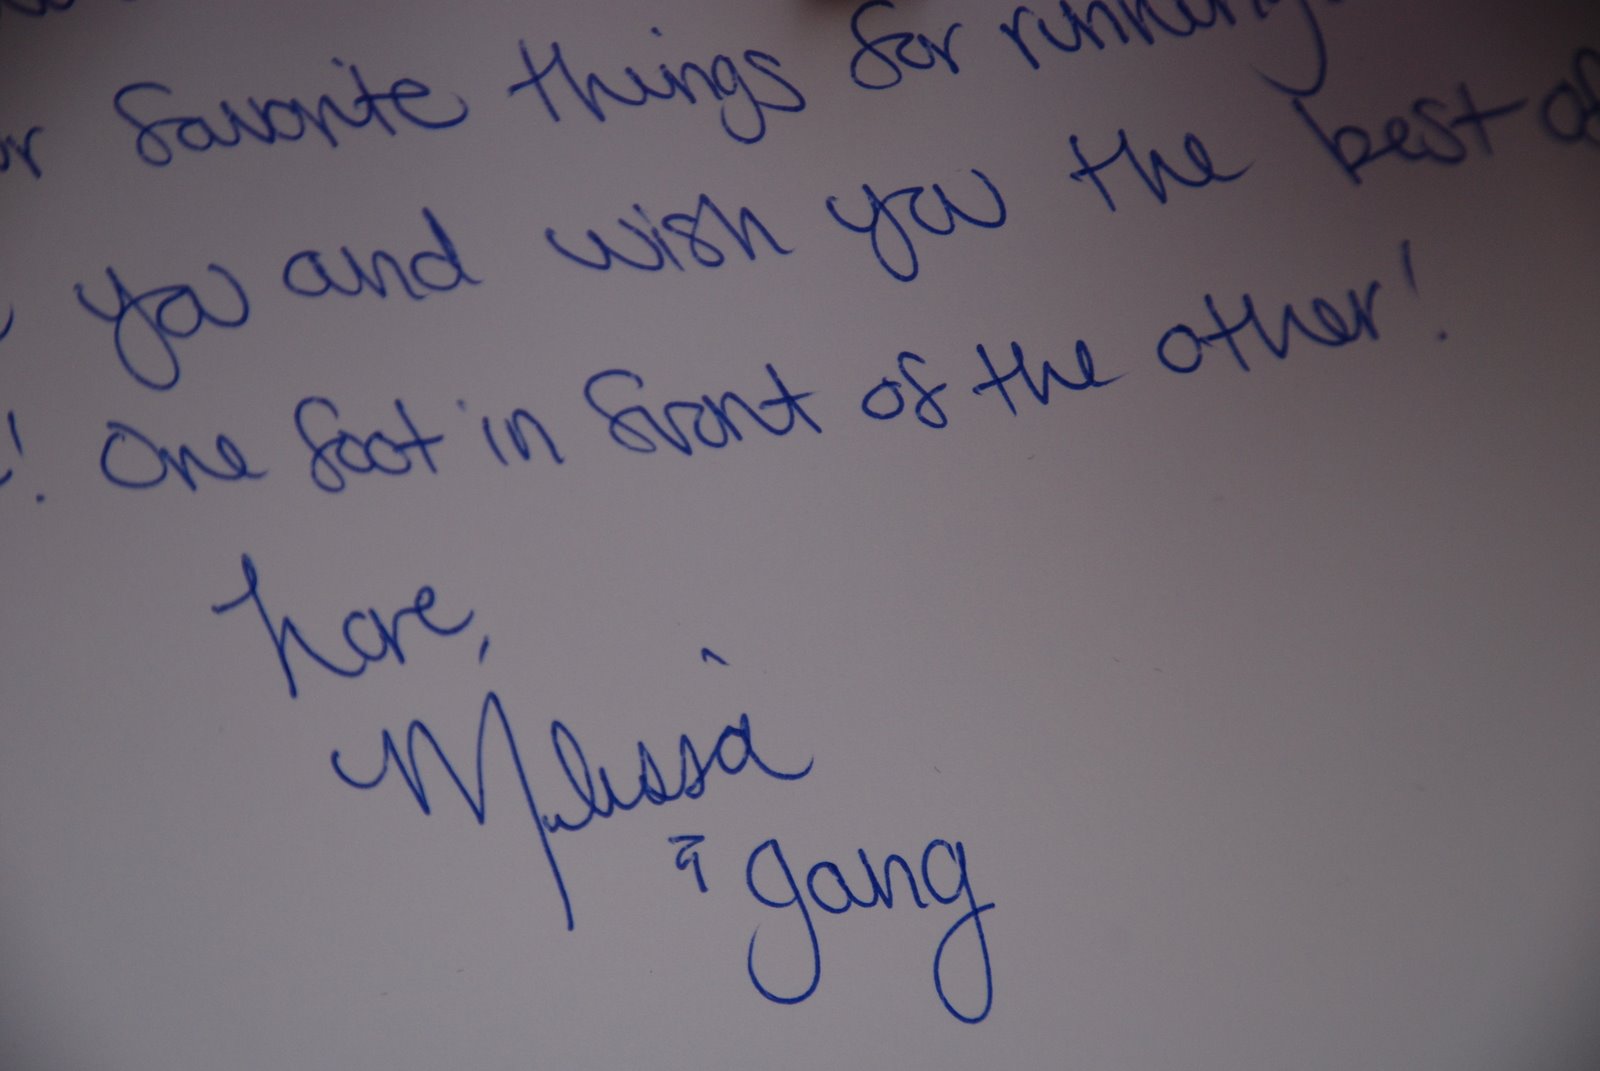 favorite things for running.
you and wish you the best of
! One foot in front of the other!
Love,
Melissa
& gang